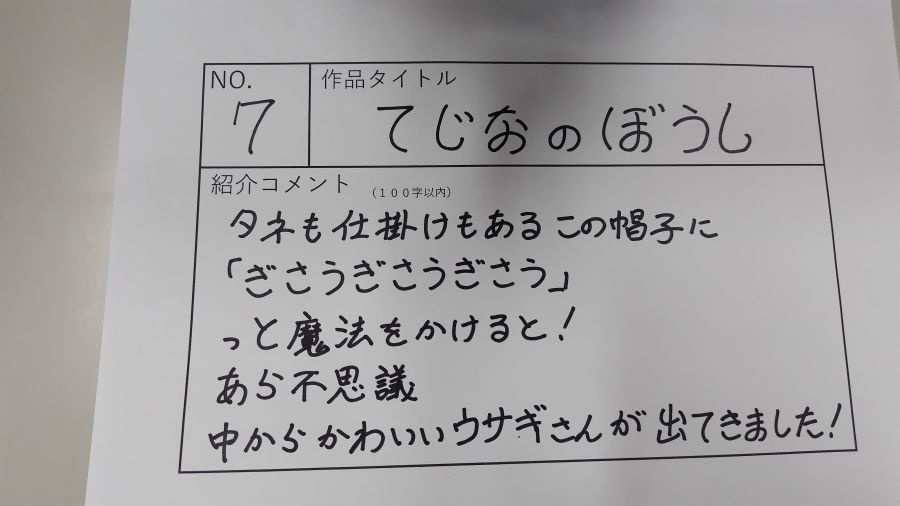 NO.
7
作品タイトル
てじなのぼうし
紹介コメント (100字以内)
タネも仕掛けもあるこの帽子に
「ぎさうぎさうぎさう」
っと魔法をかけると!
あら不思議
中からかわいいウサギさんが出てきました!